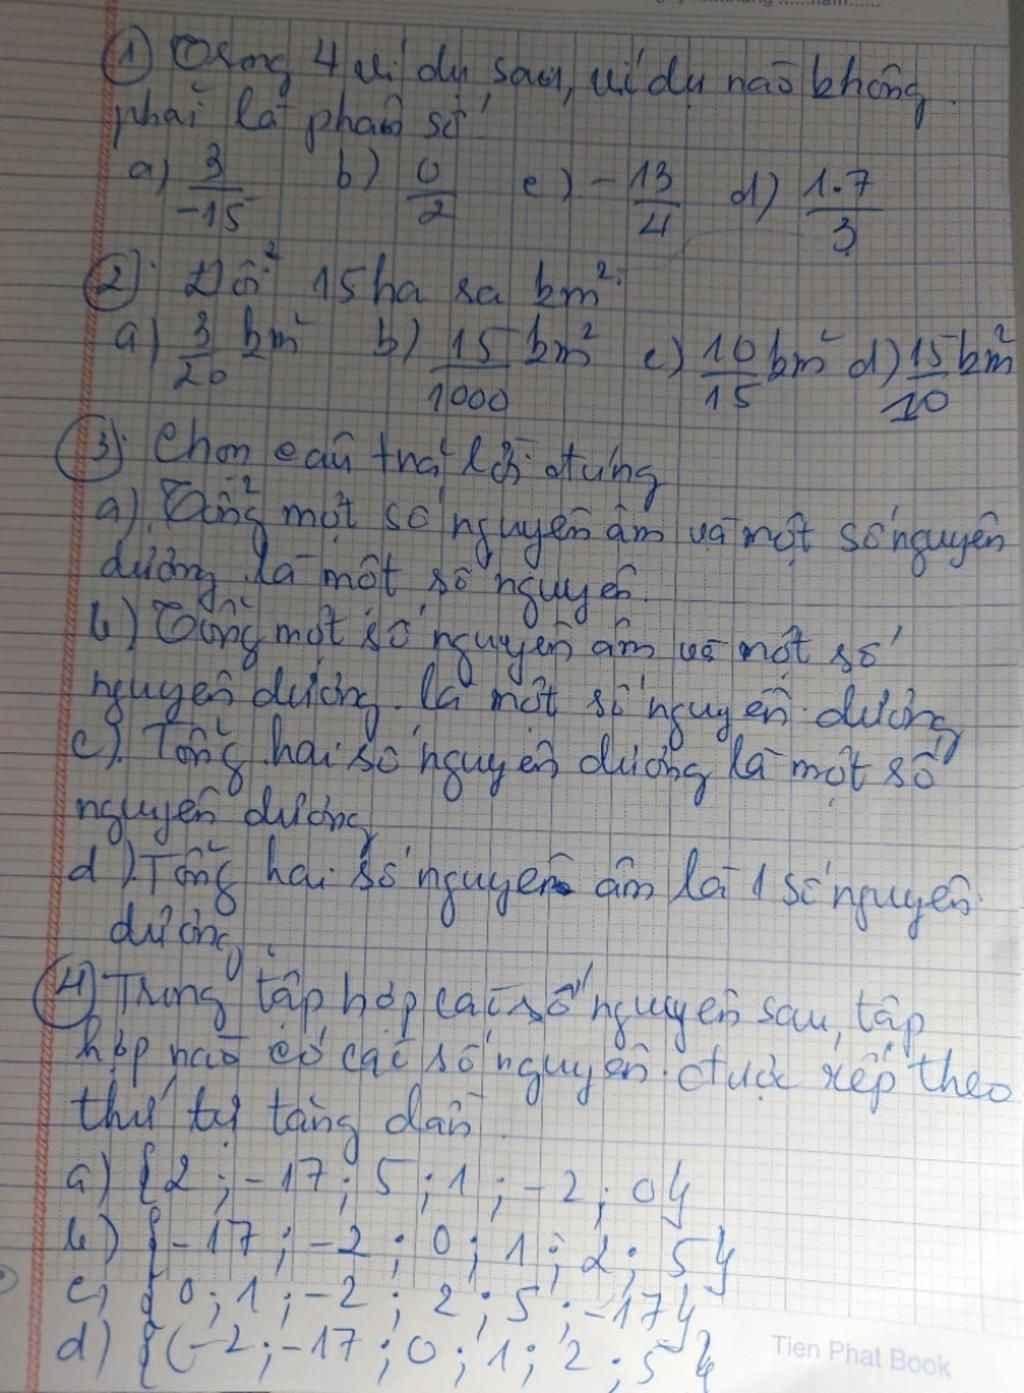 ① Trong 4 ví dụ sau, ví dụ nào không
phải là phân số
a) 3/-15 b) 0/2 c) -13/4 d) 1.7/3
② Đổi 15ha ra km²:
a) 3/20 km² b) 15/1000 km² c) 10/15 km² d) 15/10 km²
③ Chọn câu trả lời đúng
a) Tổng một số nguyên âm và một số nguyên
dương là một số nguyên.
b) Tổng một số nguyên âm và một số
nguyên dương là một số nguyên dương
c) Tổng hai số nguyên dương là một số
nguyên dương
d) Tổng hai số nguyên âm là 1 số nguyên
dương.
④ Trong tập hợp các số nguyên sau, tập
hợp nào có các số nguyên được xếp theo
thứ tự tăng dần
a) {2; -17; 5; 1; -2; 0}
b) {-17; -2; 0; 1; 2; 5}
c) {0; 1; -2; 2; 5; -17}
d) {(-2; -17; 0; 1; 2; 5}
Tien Phat Book